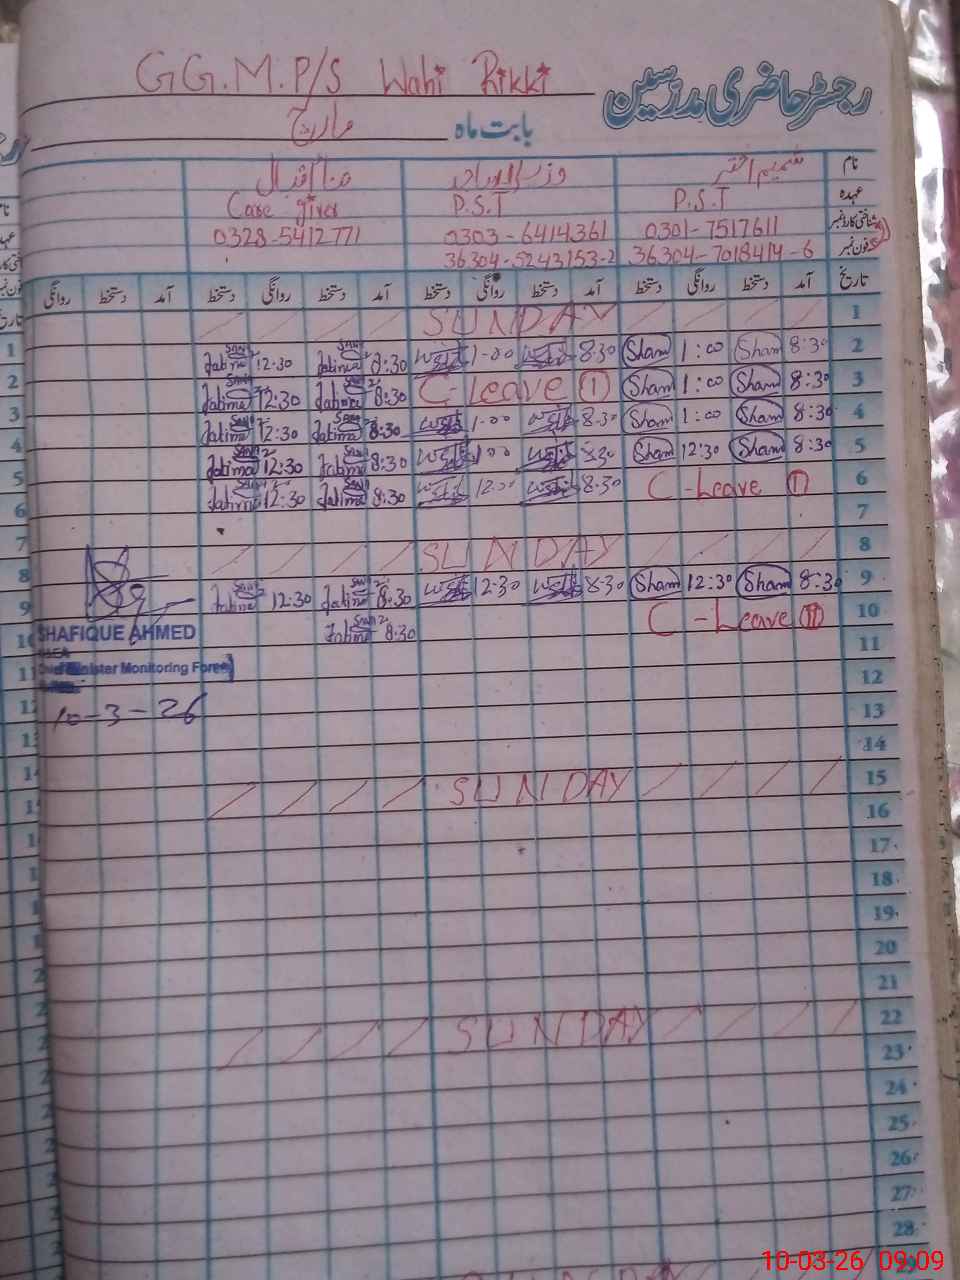 G G.M.P/S Wahi Rikki
رجسٹر حاضری مدرسین
بابت ماہ مارچ
نام شمیم اختر
عہدہ P.S.T P.S.T Care giver
شناختی کارڈ نمبر 0301-7517611 0303-6414361 0328-5412771
فون نمبر 36304-7018414-6 36304-5243153-2
تاریخ آمد دستخط روانگی دستخط آمد دستخط روانگی دستخط آمد دستخط روانگی دستخط آمد دستخط روانگی
1 SUNDAY
2 8:30 Sham 1:00 Sham 8.30 1-00 8:30 Fatima 12:30 Fatima
3 8:30 Sham 1:00 Sham C-Leave 1 8:30 Fatima 12:30 Fatima
4 8:30 Sham 1:00 Sham 8.30 1-00 8:30 Fatima 12:30 Fatima
5 8:30 Sham 12:30 Sham 8.30 1.00 8:30 Fatima 12:30 Fatima
6 C-Leave 1 8.30 12.30 8:30 Fatima 12:30 Fatima
7
8 SUNDAY
9 8:30 Sham 12:30 Sham 8.30 12.30 8:30 Fatima 12:30 Fatima
10 C-Leave 11 8:30 Fatima
11
12
13
14
15 SUNDAY
16
17
18
19
20
21
22 SUNDAY
23
24
25
26
27
28
SHAFIQUE AHMED
Chief Minister Monitoring Force
10-3-26
10-03-26 09:09